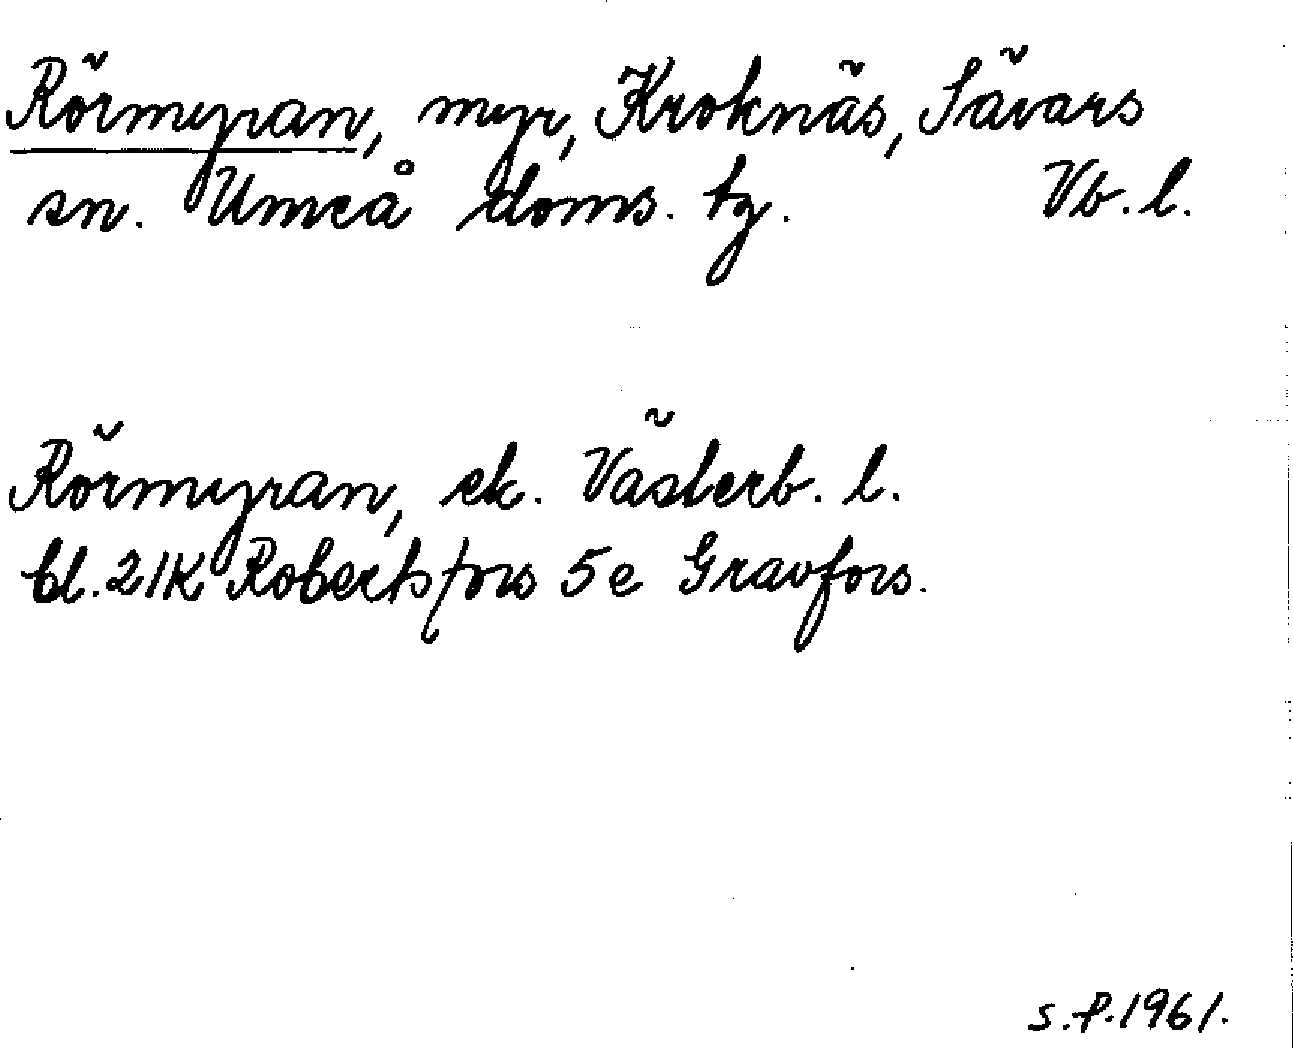 Rörmyran, myr, Kroknäs, Sävars
sn. Umeå doms. tg. Vb. l.
Rörmyran, ek. Västerb. l.
bl. 21K Robertsfors 5e Gravfors.
S.P. 1961.